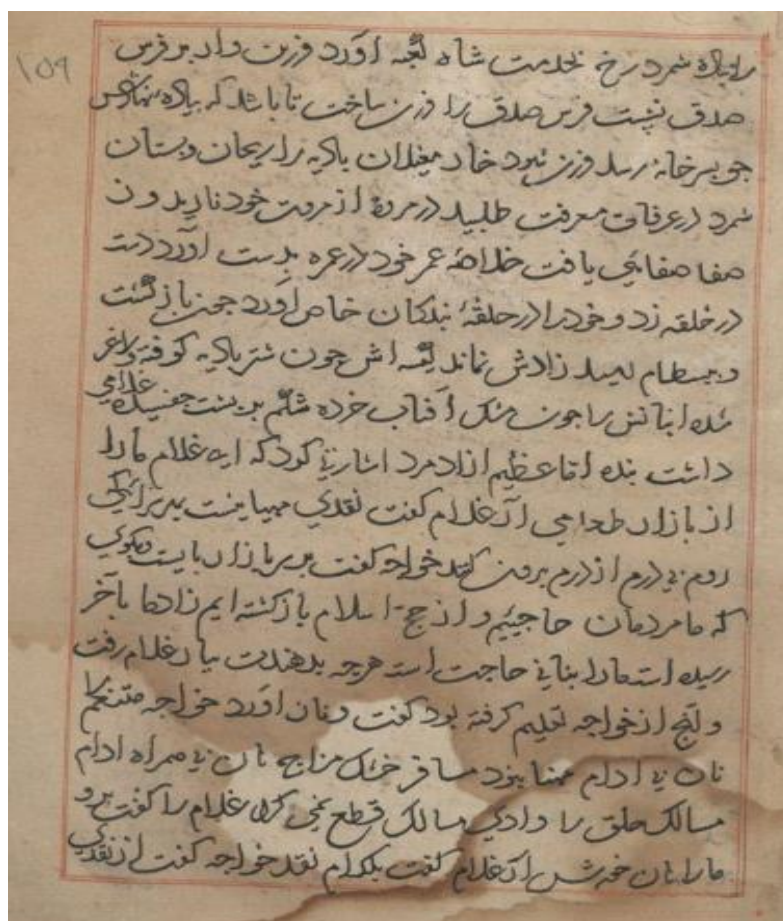 ۱۵۹
را پیاده شمرد رخ بخدمت شاه کعبه آورد فرزین وار بر فرس
صدق نشست فرس صدق را فرزین ساخت تا باشد که پیاده
چو بسر خانه رسد فرزین شود خار مغیلان بادیه را ریحان وبستان
شمرد در عرفات معرفت طلبید در مروه از مروت خود نادیدن
صفا صفایی یافت خلاصهٔ عمر خود در عمره بدست آورد دست
در حلقه زد و خود را در حلقهٔ بندکان خاص آورد چون باز گشت
و ببسطام رسید زادش نماند کیسه اش چون شتر بادیه کوفته ولاغر
شده انبانش را چون مشک آفتاب خرده شکم بر پشت غلامی
داشت بنده اقا عظیم ازاد مرد اشارتی کرد که ای غلام ما را
از بازار طعامی آر غلام کفت نقدی مهیا نیست
روم بی درم از درم برون کنند خواجه کفت بر سر بازار بایست وبکوی
که ما مردمان حاجییم و از حج اسلام باز کشته ایم زاد ما بآخر
رسیده است ما را بنانی حاجت است هرچه بدهندت بیار غلام رفت
و آنچ از خواجه تعلیم کرفته بود کفت ونان آورد خواجه متنعم
نان بی ادام مسافر خشک مزاج نان بی همراه ادام
مسالک حلق را وادی مسالک قطع نمی کرد غلام را کفت برو
ما را نان خورش آر غلام کفت بکدام نقد خواجه کفت از نقدی